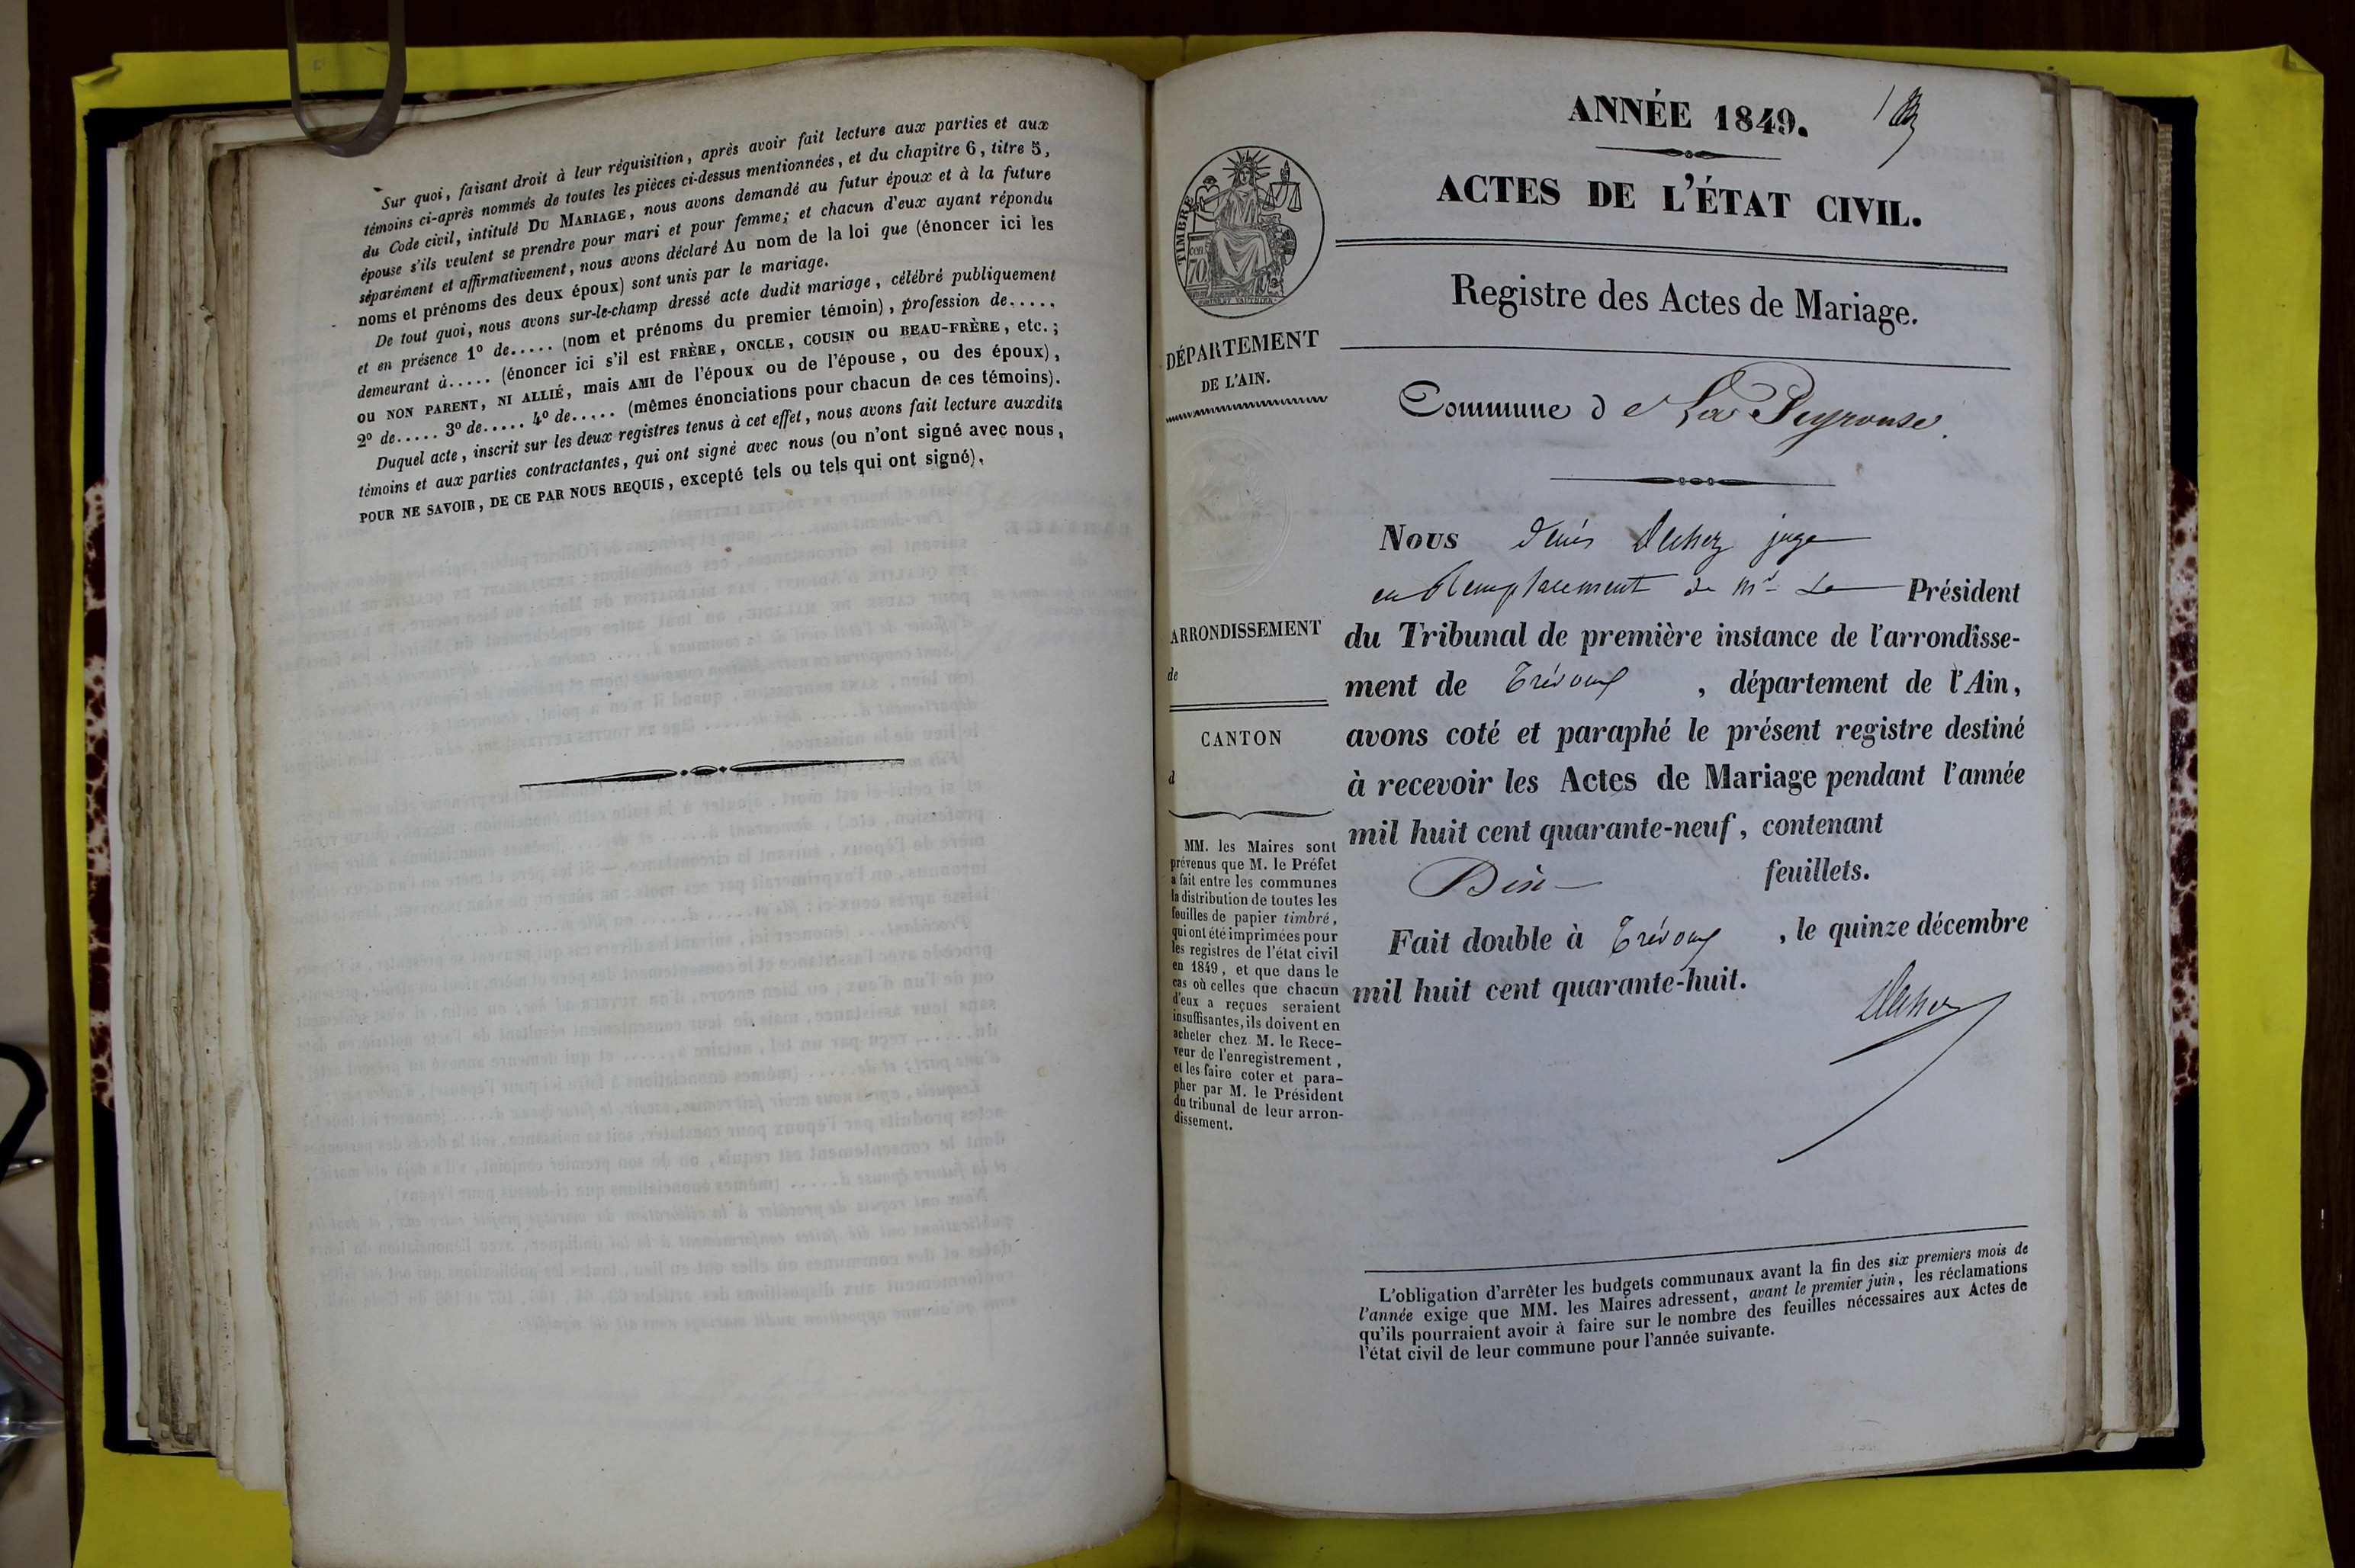 Sur quoi, faisant droit à leur réquisition, après avoir fait lecture aux parties et aux
témoins ci-après nommés de toutes les pièces ci-dessus mentionnées, et du chapitre 6, titre 5,
du Code civil, intitulé DU MARIAGE, nous avons demandé au futur époux et à la future
épouse s'ils veulent se prendre pour mari et pour femme; et chacun d'eux ayant répondu
séparément et affirmativement, nous avons déclaré Au nom de la loi que (énoncer ici les
noms et prénoms des deux époux) sont unis par le mariage.
De tout quoi, nous avons sur-le-champ dressé acte dudit mariage, célébré publiquement
et en présence 1º de..... (nom et prénoms du premier témoin), profession de.....
demeurant à..... (énoncer ici s'il est FRÈRE, ONCLE, COUSIN OU BEAU-FRÈRE, etc.;
ou NON PARENT, NI ALLIÉ, mais AMI de l'époux ou de l'épouse, ou des époux),
2º de..... 3º de..... 4º de..... (mêmes énonciations pour chacun de ces témoins).
Duquel acte, inscrit sur les deux registres tenus à cet effet, nous avons fait lecture auxdits
témoins et aux parties contractantes, qui ont signé avec nous (ou n'ont signé avec nous,
POUR NE SAVOIR, DE CE PAR NOUS REQUIS, excepté tels ou tels qui ont signé).
ANNÉE 1849.
ACTES DE L'ÉTAT CIVIL.
Registre des Actes de Mariage.
TIMBRE
70
DÉPARTEMENT
DE L'AIN.
Commune de La Peyrouse
ARRONDISSEMENT
de
CANTON
d
MM. les Maires sont
prévenus que M. le Préfet
a fait entre les communes
la distribution de toutes les
feuilles de papier timbré,
qui ont été imprimées pour
les registres de l'état civil
en 1849, et que dans le
cas où celles que chacun
d'eux a reçues seraient
insuffisantes, ils doivent en
acheter chez M. le Rece-
veur de l'enregistrement,
et les faire coter et para-
pher par M. le Président
du tribunal de leur arron-
dissement.
Nous Denis juge
en Remplacement de Mr Le Président
du Tribunal de première instance de l'arrondisse-
ment de Trévoux, département de l'Ain,
avons coté et paraphé le présent registre destiné
à recevoir les Actes de Mariage pendant l'année
mil huit cent quarante-neuf, contenant
Dix feuillets.
Fait double à Trévoux, le quinze décembre
mil huit cent quarante-huit.
L'obligation d'arrêter les budgets communaux avant la fin des six premiers mois de
l'année exige que MM. les Maires adressent, avant le premier juin, les réclamations
qu'ils pourraient avoir à faire sur le nombre des feuilles nécessaires aux Actes de
l'état civil de leur commune pour l'année suivante.